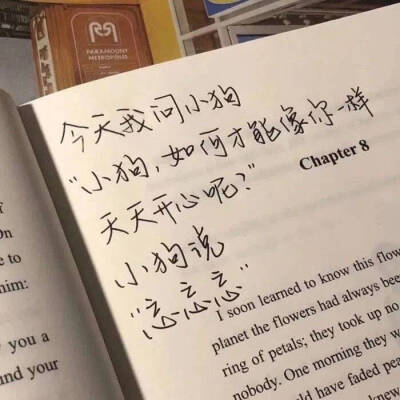 PARAMOUNT
METROPOLIS
今天我问小狗
"小狗,如何才能像你一样
天天开心呢?"
小狗说
"忘忘忘"
Chapter 8
I soon learned to know this flow
planet the flowers had always bee
ring of petals; they took up no
nobody. One morning they w
ld have faded peac
knew
On
e to
him:
you a
nd your